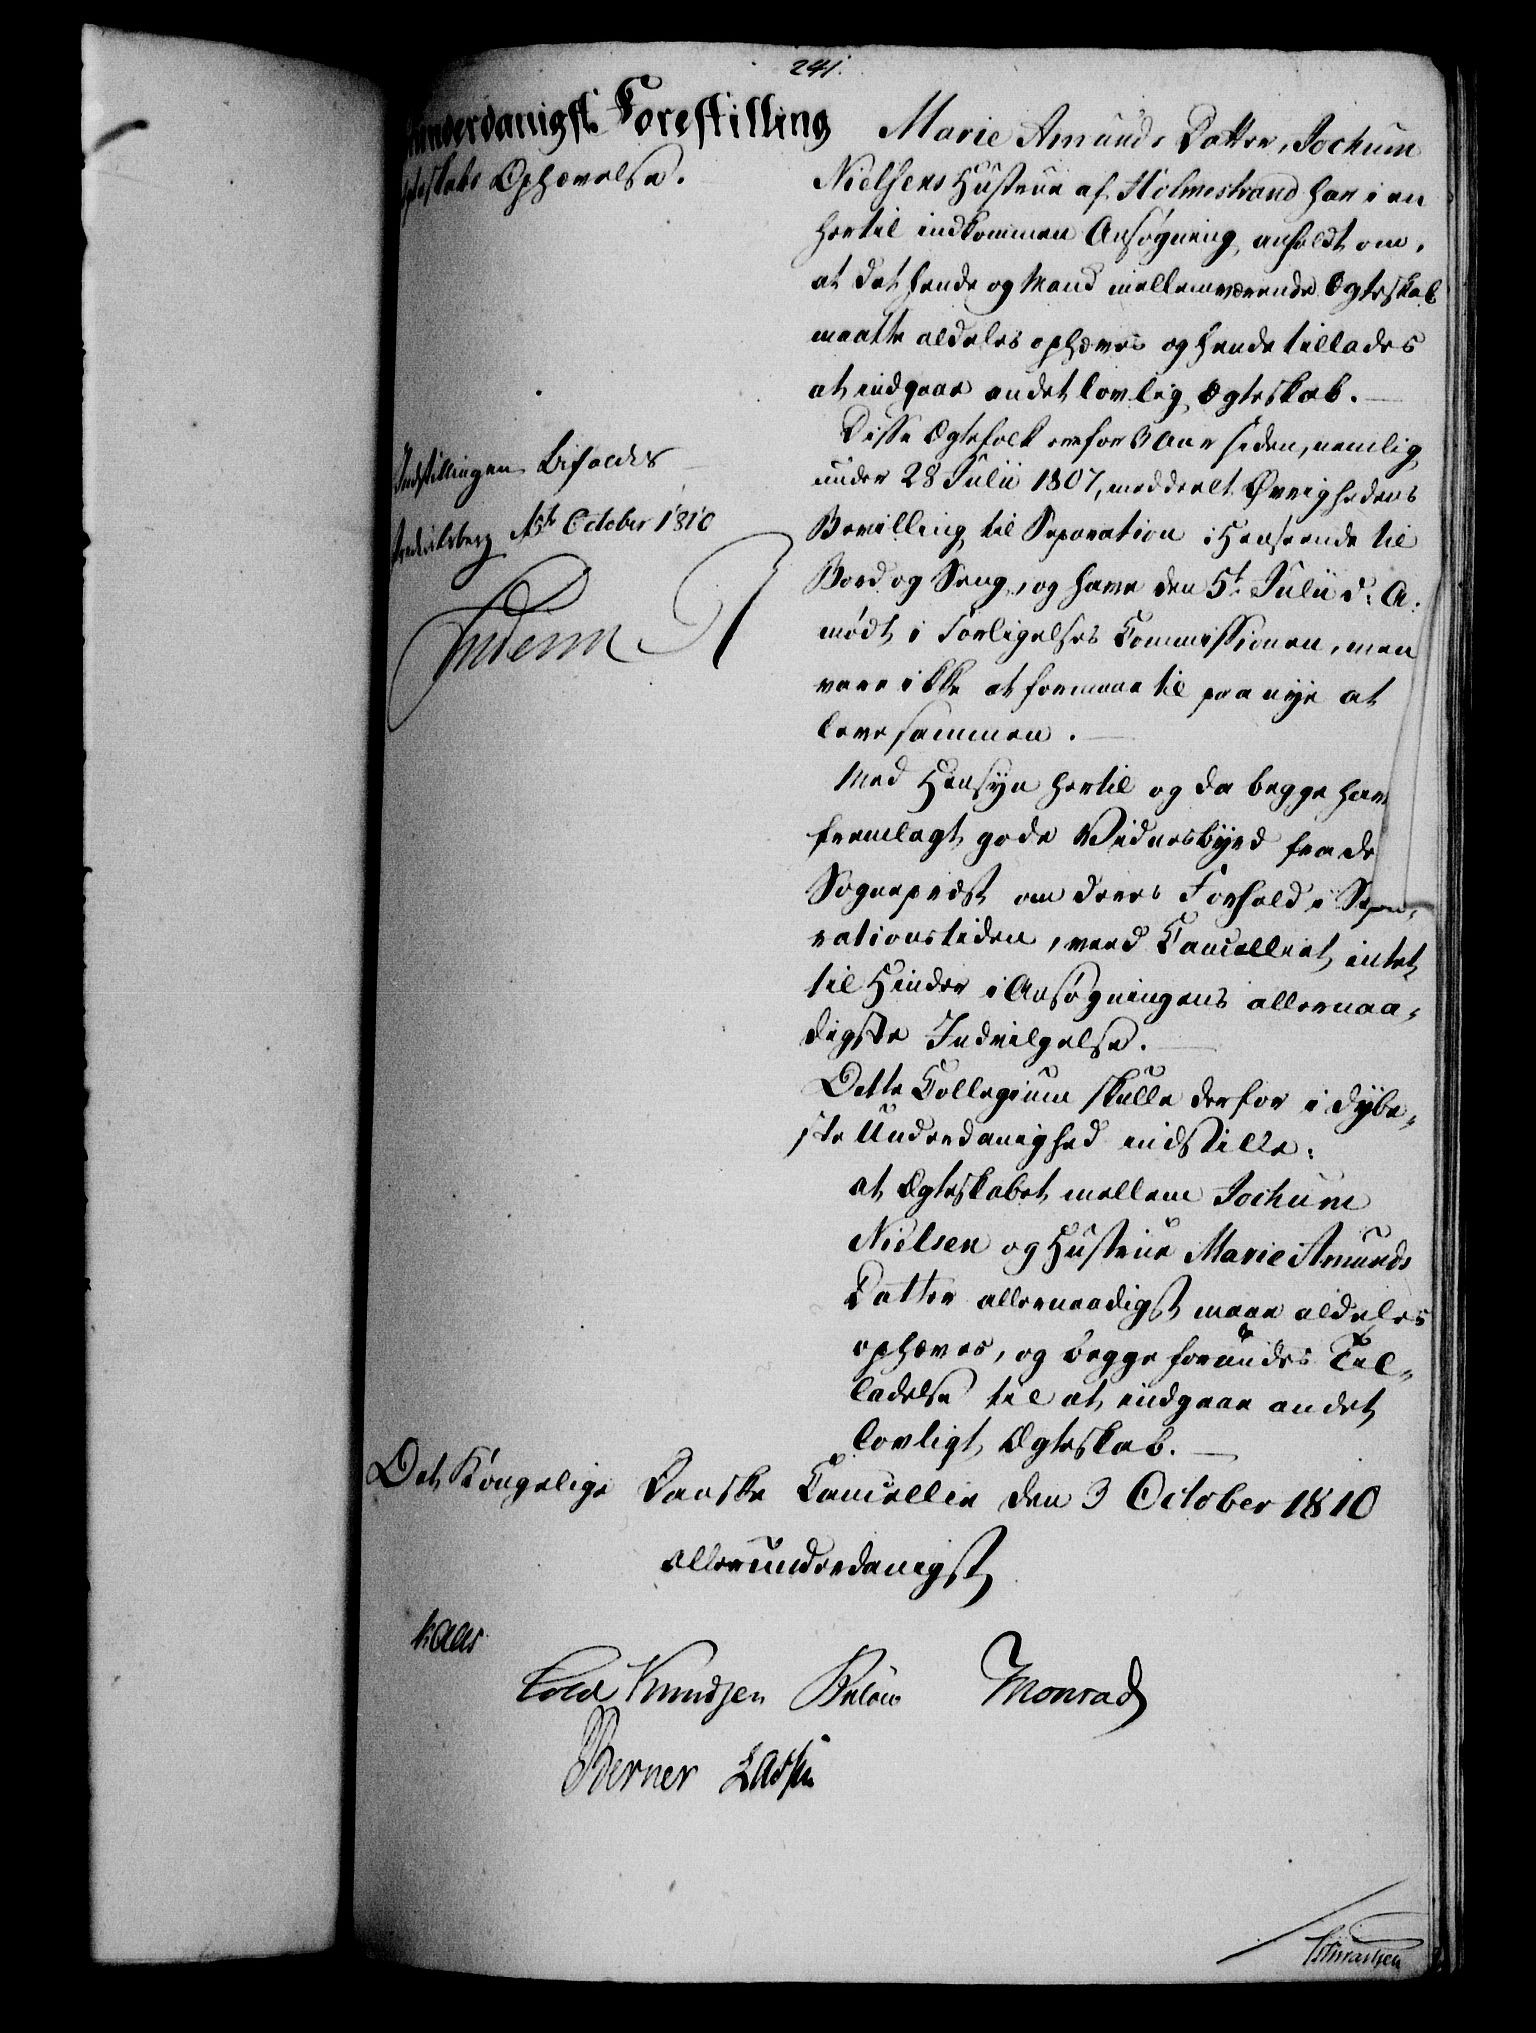 241.
underdanigst Forestilling
Ægteskabs Ophævelse.
Marie Amunds Datter, Jochum
Nielsens Hustrue af Holmestrand har i en
hertil indkommen Ansøgning anholdt om,
at det hende og Mand mellemværende Ægteskab
maatte aldeles ophæves og hende tillades
at indgaae andet lovlig Ægteskab.
Disse Ægtefolk ere for 3 Aar siden, nemlig
under 28 Julii 1807, meddeelt Øvrighedens
Bevilling til Separation i Henseende til
Bord og Seng, og have den 5t Julii d: A:
mødt i Forligelses Commissionen, men
vare ikke at formaae til paa nye at
leve sammen.
Med Hensyn hertil og da begge have
fremlagt gode Vidnesbyrd fra de
Sognepræst om deres Forhold i Sepa-
rationstiden, veed Cancelliet intet
til Hinder i Ansøgningens allernaa-
digste Indvilgelse.
Dette Collegium skulle derfor i dybe-
ste Underdanighed indstille:
at Ægteskabet mellem Jochum
Nielsen og Hustrue Marie Amunds
Datter allernaadigst maae aldeles
ophæves, og begge forundes Til-
ladelse til at indgaae andet
lovligt Ægteskab.
Indstillingen bifaldes
Fredriksberg October 1810
Friderich R
Det Kongelige Danske Cancellie den 3 October 1810
allerunderdanigst
Kaas
Cold Knudsen Bülow Monrad
Berner Lassen